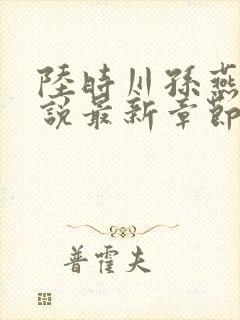 陸時川孫燕
說最新章節
普霍夫